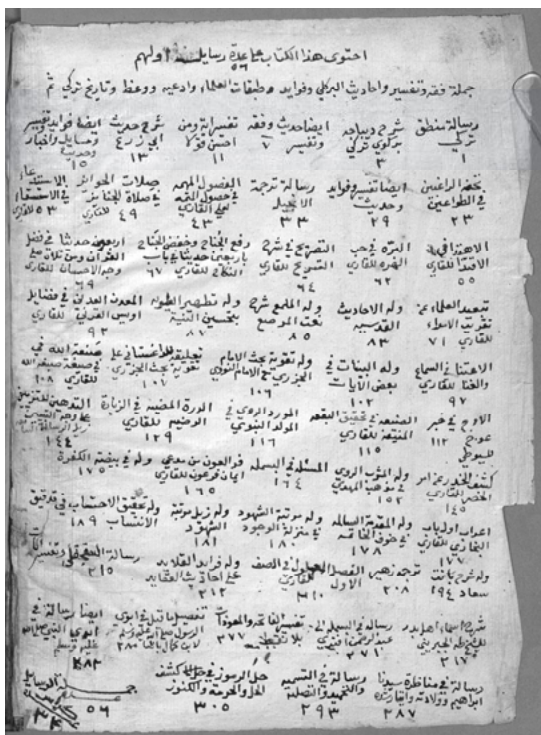 احتوى هذا الكتاب على عدة رسايل ٥٦ اولهم
جملة فقه وتفسير واحاديث البركلي وفوايد وطبقات العلماء وادعيه ووعظ وتاريخ تركي ثم
رسالة منطق تركي ١ شرح ديباجه بركوي تركي ٣ ايضا حديث وفقه وتفسير ٧ تفسير اية ومن احسن قولا ١١ شرح حديث ابي زرع ١٣ ايضا فوايد تفسير ومسايل واخبار وحديث ١٥
تحفة الراغبين في الطواعين ٢٣ ايضا تفسير وفوايد وحديث ٢٩ رسالة ترجمة الانجيل ٣٣ الفصول المهمه في حصول المتمه لعلي القاري ٤٣ صلات الجوائز في صلاة الجنائز للقاري ٤٩ الاستدعاء في الاستسقاء للقاري ٥٣
الاهتدا في الاقتدا للقاري ٥٥ البره في حب الهره للقاري ٦٢ التصريح في شرح التسريح للقاري ٦٤ رفع الجناح وخفض الجناح باربعين حديثا في باب النكاح للقاري ٦٧ اربعون حديثا في فضل القران للقاري ٦٩
تبعيد العلماء عن تقريب الامراء للقاري ٧١ وله الاحاديث القدسيه ٨٣ وله المصنوع شرح نعت المرصع ٨٥ وله تطهير الطويه بتحسين النية ٨٧ المعدن العدني في فضايل اويس القرني للقاري ٩٣
الاعتنا في السماع والغنا للقاري ٩٧ وله البنات في بعض الايات ١٠٢ وله تقوية بحث الامام الجزري مع الامام النووي ١٠٦ تعليقه على تقوية بحث الجزري ١٠٧ صنعة الله في صيغة صبغة الله للقاري ١٠٨
الاوج في خبر عوج للسيوطي ١١٢ الصنيعه في تحقيق البقعه المنيعه للقاري ١١٥ المورد الروي في المولد النبوي ١١٦ الدرة المضيه في الزيارة الرضيه للقاري ١٢٩ التدهين للتزيين على وجه التبيين ١٤٤
كشف الخدر عن امر الخضر للقاري ١٤٥ وله المشرب الوردي في مذهب المهدي ١٥٢ المسئله في البسمله ١٦٤ فر العون من مدعي ايمان فرعون للقاري ١٦٥ وله في بيضة الكفرة ١٧٥
اعراب اول باب البخاري للقاري ١٧٧ وله المقدمة السالمه في خوف الخاتمه ١٧٨ وله مرتبة الشهود في منزلة الوجود ١٨٠ وله ذيل مرتبة الشهود ١٨١ وله تحقيق الاحتساب في تدقيق الانتساب ١٨٩
وله شرح بانت سعاد ١٩٤ ترجمة زهير ٢٠٨ الفصل المعول في الصف الاول للقاري ٢١٠ وله فرايد القلايد على احاديث شرح العقايد ٢١٢ رسالة ٢١٥
شرح اسماء اهل بدر ٢١٧ رسالة في البسمله ٢٧١ تفسير الفاتحه والمعوذات بلا تنقيط ٢٧٧ تفصيل ما قيل في ابوي الرسول صلى الله عليه وسلم لابن كمال باشا ٢٨٠ ايضا رسالة في ابوي النبي صلى الله عليه وسلم ٢٨٢
رسالة في مناظرة سيدنا ابراهيم وولادته ٢٨٧ رسالة في التسميه والتحميد والتصليه ٢٩٣ حل الرموز في كشف والكنوز ٣٠٥ جملة الرسايل ٥٦